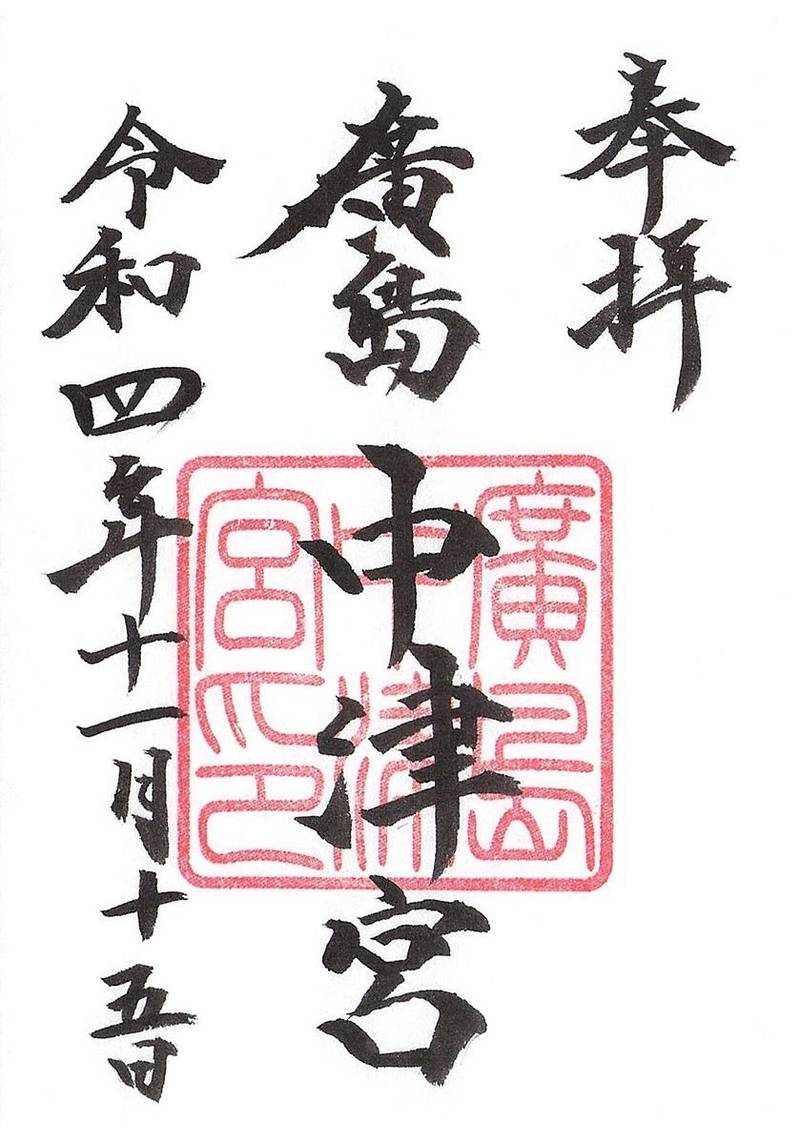 奉拝
廣島中津宮
令和四年十一月十五日
廣島
中津
宮印